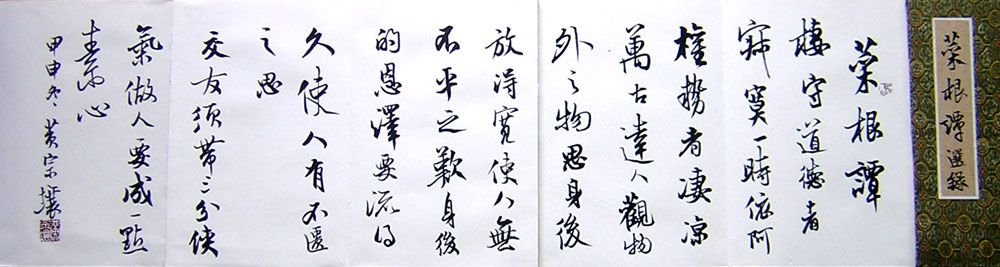 菜根譚選錄
菜根譚
棲守道德者
寂寞一時依阿
權勢者淒涼
萬古達人觀物
外之物思身後
放得寬使人無
不平之歎身後
的恩澤要流得
久使人有不匱
之思
交友須帶三分俠
氣做人要成一點
素心
甲申冬 黃宗